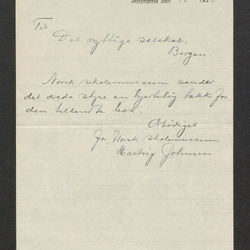 Kristiania den
Til
Det nyttige selskab,
Bergen
Norsk skolemuseum sender
det ærede styre en hjertelig takk for
den tilsendte bok.
Ærbødigst
for Norsk skolemuseum
Hartvig Johnsen